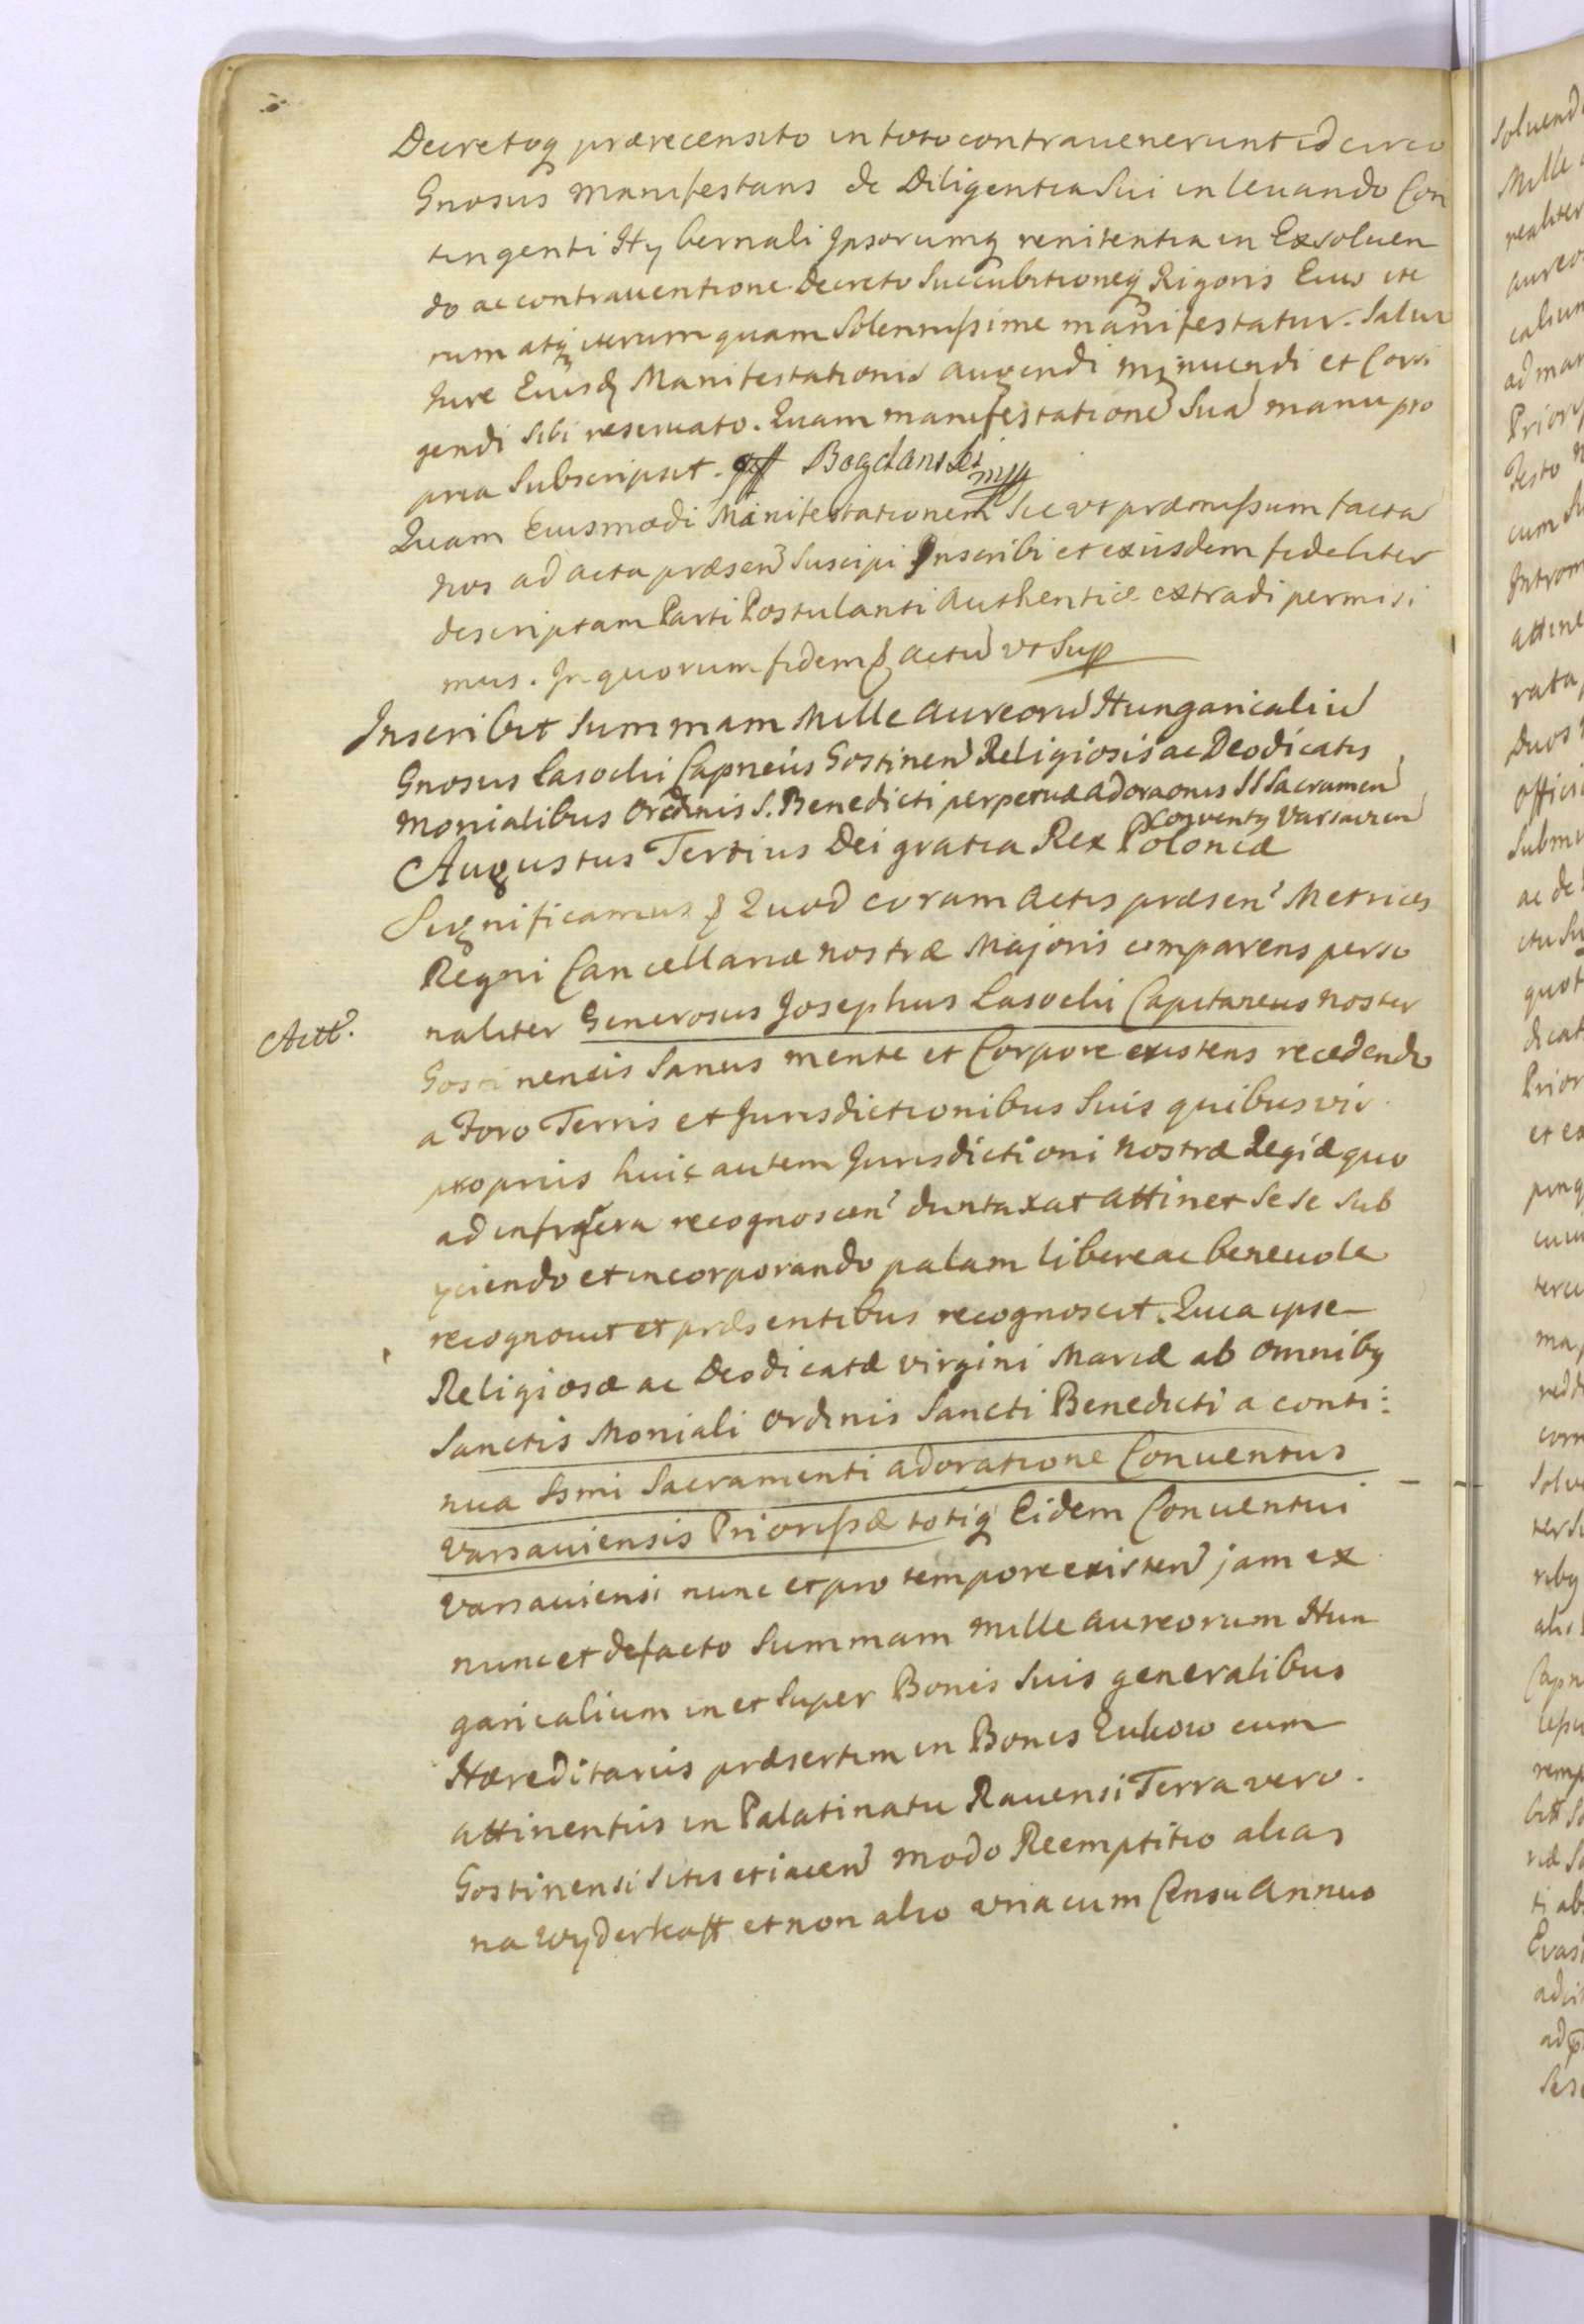 Decretoq prærecensito in toto contravenerunt idcirco
Gnosus manifestans de Diligentia Sui in levando Con
tingenti Hybernali Ipsorumq renitentia in Exsoluen
do ac contraventione Decreto Succubitioneq Rigoris Eius ite
rum atq iterum quam Solennissime manifestatur. Salvo
Jure Eiusd Manifestationis augendi minuendi et Corri
gendi sibi reservato. Quam manifestatione Sua manu pro
pria Subscripsit. Bogdanski mp
Quam Eiusmodi Manifestationem Sic ut præmissum facta
nos ad acta præsen Suscipi Inscribi et exiisdem fideliter
descriptam Parti Postulanti Authentice extradi permisi
mus. In quorum fidem & actu ut Sup
Inscribit Summam Mille Aureoru Hungaricaliu
Gnosus Lasocki Capneus Gostinen Religiosis ac Deodicatis
Monialibus Ordinis S. Benedicti perpetuæ adoraonis SSacramen
Conventq Varsavien
Augustus Tertius Dei gratia Rex Poloniæ
Significamus & Quod coram Actis præsen Metrices
Regni Cancellariæ nostræ Majoris comparens perso
Actt.
naliter Generosus Josephus Lasocki Capitaneus noster
Gostinensis Sanus mente et Corpore existens recedendo
a Foro Terris et Jurisdictionibus Suis quibusvis
propriis huic autem Jurisdictioni nostræ Regiæ quo
ad infrascra recognoscen duntaxat attinet se se sub
yciendo et incorporando palam libere ac benevole
recognovit et præsentibus recognoscit. Quia ipse
Religiosæ ac Deodicatæ virgini Mariæ ab omnibq
Sanctis Moniali ordinis Sancti Benedicti a conti:
nua Ssmi Sacramenti adoratione Conventus
Varsaviensis Priorissæ totiq Eidem Conventui
Varsaviensi nunc et pro tempore existen jam ex
nunc et defacto Summam mille aureorum Hun
garicalium in et super Bonis Suis generalibus
Hæreditariis præsertim in Bonis Lukow cum
attinentiis in Palatinatu Ravensi Terra vero
Gostinensi sitis et iacen modo Reemptitio alias
na Wyderkaff et non alio una cum Censu Annuo